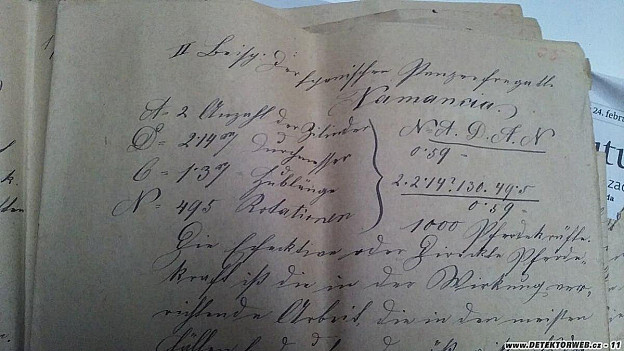 II Beisp. Der spanischen Panzerfregatte
Numancia.
A = 2 Anzahl der Zilinder
D = 2·14 Durchmesser
C = 1·30 Hublänge
N = 495 Rotationen
0·59
2·2·14²·130·49·5
0·59
1000 Pferdekräfte.
Die Effektive oder Direckte Pferde-
kraft ist die in der Wirkung ver-
richtende Arbeit, die in den meisten
Fällen
24. febru
utu
zac
da
WWW.DETEKTORWEB.cz - 11